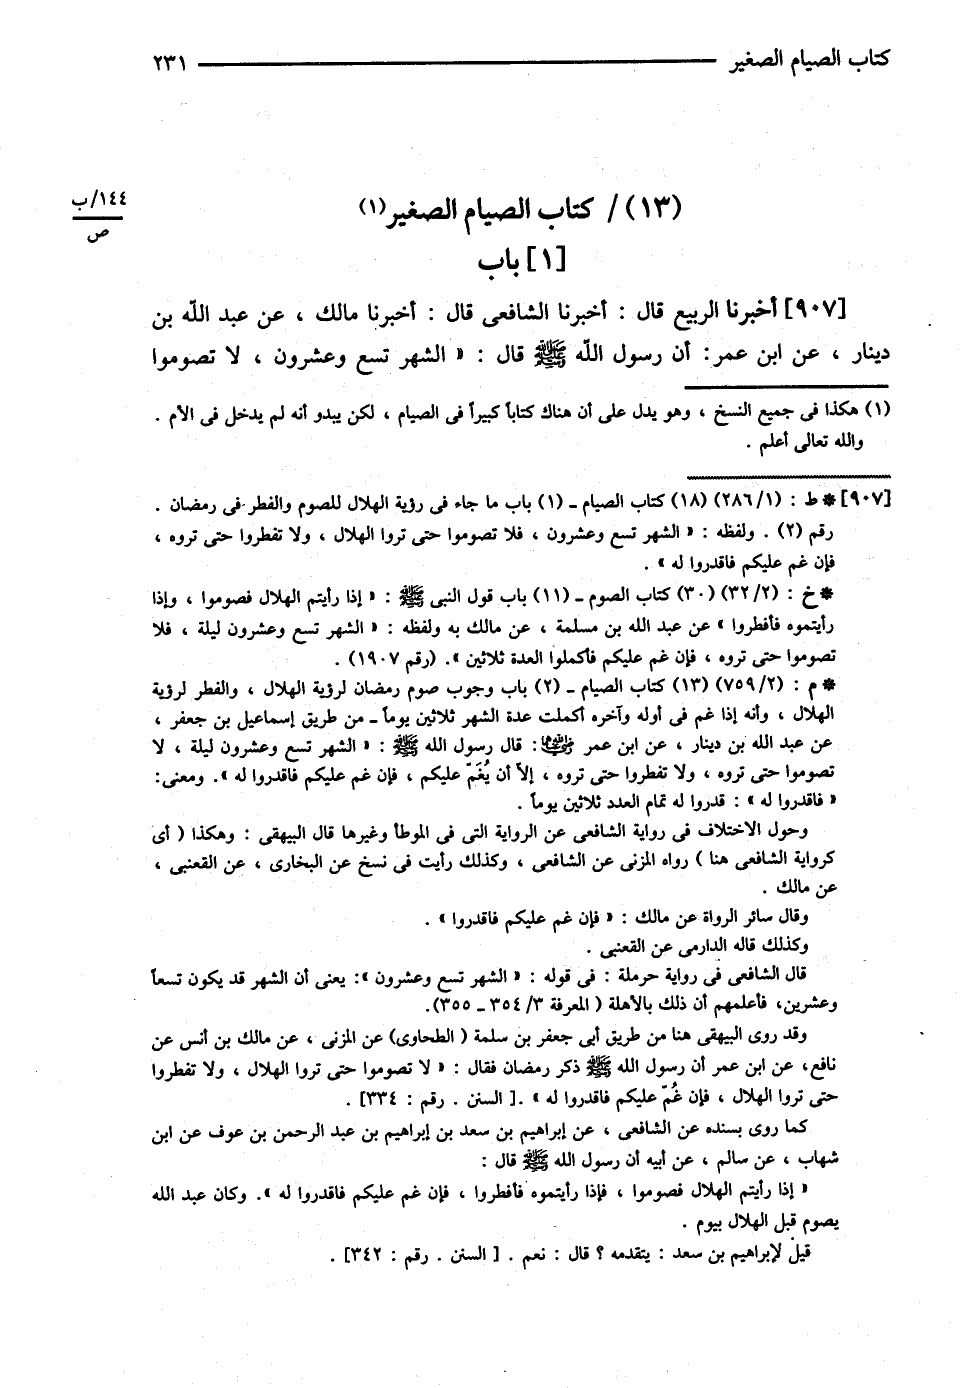 كتاب الصيام الصغير ــــــــــ ٢٣١
١٤٤/ب
ص
(١٣) / كتاب الصيام الصغير(١)
[١] باب
[٩٠٧] أخبرنا الربيع قال : أخبرنا الشافعى قال : أخبرنا مالك ، عن عبد اللّه بن
دينار ، عن ابن عمر: أن رسول اللّه ﷺ قال : « الشهر تسع وعشرون ، لا تصوموا
(١) هكذا فى جميع النسخ ، وهو يدل على أن هناك كتاباً كبيراً فى الصيام ، لكن يبدو أنه لم يدخل فى الأم .
والله تعالى أعلم .
[٩٠٧] * ط : (١/ ٢٨٦) (١٨) كتاب الصيام ـ (١) باب ما جاء فى رؤية الهلال للصوم والفطر فى رمضان .
رقم (٢) . ولفظه : « الشهر تسع وعشرون ، فلا تصوموا حتى تروا الهلال ، ولا تفطروا حتى تروه ،
فإن غم عليكم فاقدروا له » .
* خ : (٢/ ٣٢) (٣٠) كتاب الصوم ـ (١١) باب قول النبى ﷺ : « إذا رأيتم الهلال فصوموا ، وإذا
رأيتموه فأفطروا » عن عبد الله بن مسلمة ، عن مالك به ولفظه : « الشهر تسع وعشرون ليلة ، فلا
تصوموا حتى تروه ، فإن غم عليكم فأكملوا العدة ثلاثين ». (رقم ١٩٠٧) .
* م : (٢/ ٧٥٩) (١٣) كتاب الصيام ـ (٢) باب وجوب صوم رمضان لرؤية الهلال ، والفطر لرؤية
الهلال ، وأنه إذا غم فى أوله وآخره أكملت عدة الشهر ثلاثين يوماً ـ من طريق إسماعيل بن جعفر ،
عن عبد الله بن دينار ، عن ابن عمر رضي الله عنهما : قال رسول الله ﷺ : « الشهر تسع وعشرون ليلة ، لا
تصوموا حتى تروه ، ولا تفطروا حتى تروه ، إلاّ أن يُغَمّ عليكم ، فإن غم عليكم فاقدروا له ». ومعنى:
« فاقدروا له » : قدروا له تمام العدد ثلاثين يوماً .
وحول الاختلاف فى رواية الشافعى عن الرواية التى فى الموطأ وغيرها قال البيهقى : وهكذا ( أى
كرواية الشافعى هنا ) رواه المزنى عن الشافعى ، وكذلك رأيت فى نسخ عن البخارى ، عن القعنبى ،
عن مالك .
وقال سائر الرواة عن مالك : « فإن غم عليكم فاقدروا » .
وكذلك قاله الدارمى عن القعنبى .
قال الشافعى فى رواية حرملة : فى قوله : « الشهر تسع وعشرون »: يعنى أن الشهر قد يكون تسعاً
وعشرين، فأعلمهم أن ذلك بالأهلة ( المعرفة ٣/ ٣٥٤ ـ ٣٥٥).
وقد روى البيهقى هنا من طريق أبى جعفر بن سلمة ( الطحاوى) عن المزنى ، عن مالك بن أنس عن
نافع، عن ابن عمر أن رسول الله ﷺ ذكر رمضان فقال : « لا تصوموا حتى تروا الهلال ، ولا تفطروا
حتى تروا الهلال ، فإن غُمّ عليكم فاقدروا له » .[ السنن . رقم : ٣٣٤] .
كما روى بسنده عن الشافعى ، عن إبراهيم بن سعد بن إبراهيم بن عبد الرحمن بن عوف عن ابن
شهاب ، عن سالم ، عن أبيه أن رسول الله ﷺ قال :
« إذا رأيتم الهلال فصوموا ، فإذا رأيتموه فأفطروا ، فإن غم عليكم فاقدروا له ». وكان عبد الله
يصوم قبل الهلال بيوم .
قيل لإبراهيم بن سعد : يتقدمه ؟ قال : نعم . [ السنن . رقم : ٣٤٢] .